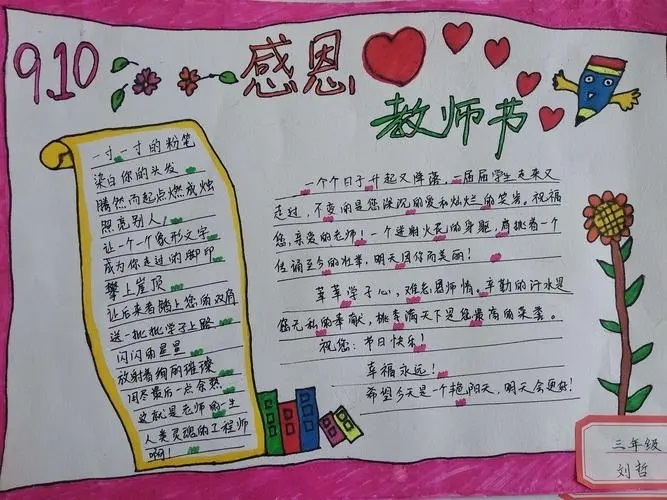 9.10
感恩
教师节
一寸一寸的粉笔
染白你的头发
腾然而起点燃成烛
照亮别人
让一个个象形文字
成为你走过的脚印
攀上崖顶
让后来者踏上您的双肩
送一批批学子上路
闪闪的星星
放射着绚丽璀璨
用尽最后一点余热
这就是老师的一生
人类灵魂的工程师
啊!
一个个日子升起又降落,一届届学生走来又
走过,不变的是您深沉的爱和灿烂的笑容。祝福
您,亲爱的老师!一个迸射火花的身躯,肩挑着一个
传诵至今的壮举,明天因你而美丽!
莘莘学子心,难忘恩师情。辛勤的汗水是
您无私的奉献,桃李满天下是您最高的荣誉。
祝您:节日快乐!
幸福永远!
希望今天是一个艳阳天,明天会更好!
三年级
刘哲